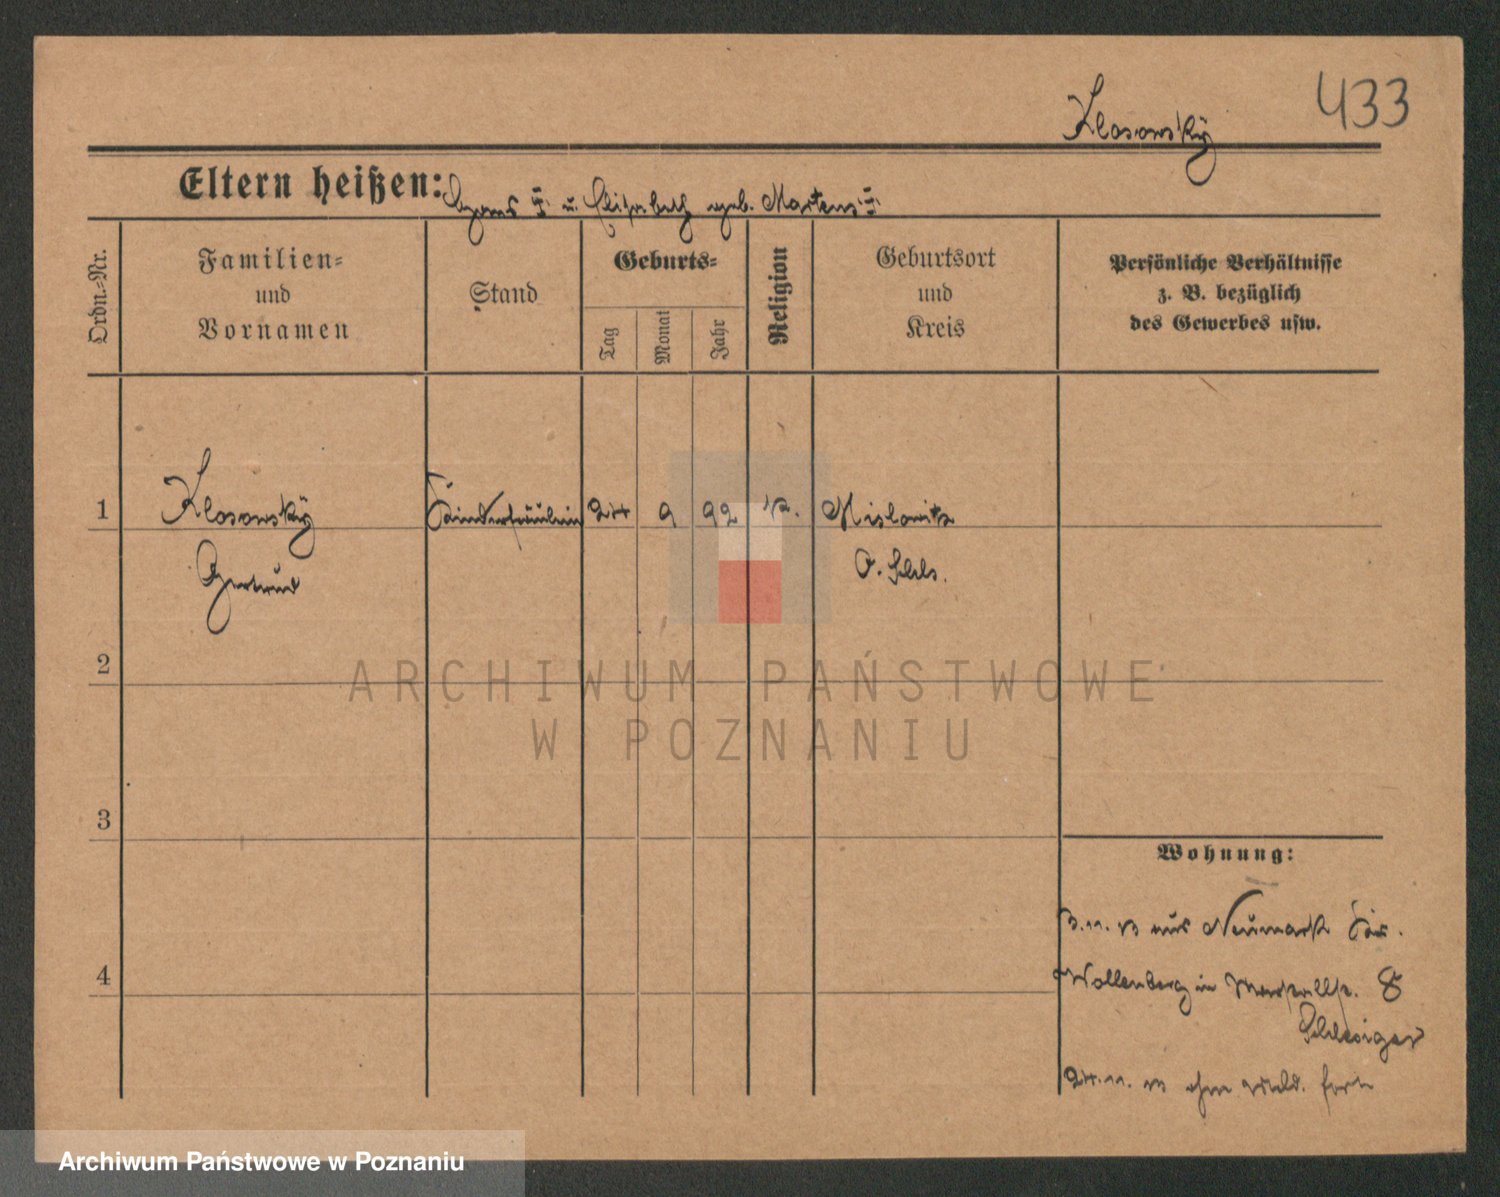 433
Klosowsky
Eltern heißen: † u. Elisabeth geb. Martens †
Ordn.-Nr.
Familien-
und
Vornamen
Stand
Geburts-
Tag
Monat
Jahr
Religion
Geburtsort
und
Kreis
Persönliche Verhältnisse
z. B. bezüglich
des Gewerbes usw.
1 Klosowsky Kinderfräulein 24 9 92 k. Mislowitz
Gertrud O. Schles.
2
3
4
Wohnung:
aus Neumark Kr.
Wollenberg in 8
Schlesiger
24. 11. ohne Meld. fort
ARCHIWUM PAŃSTWOWE
W POZNANIU
Archiwum Państwowe w Poznaniu